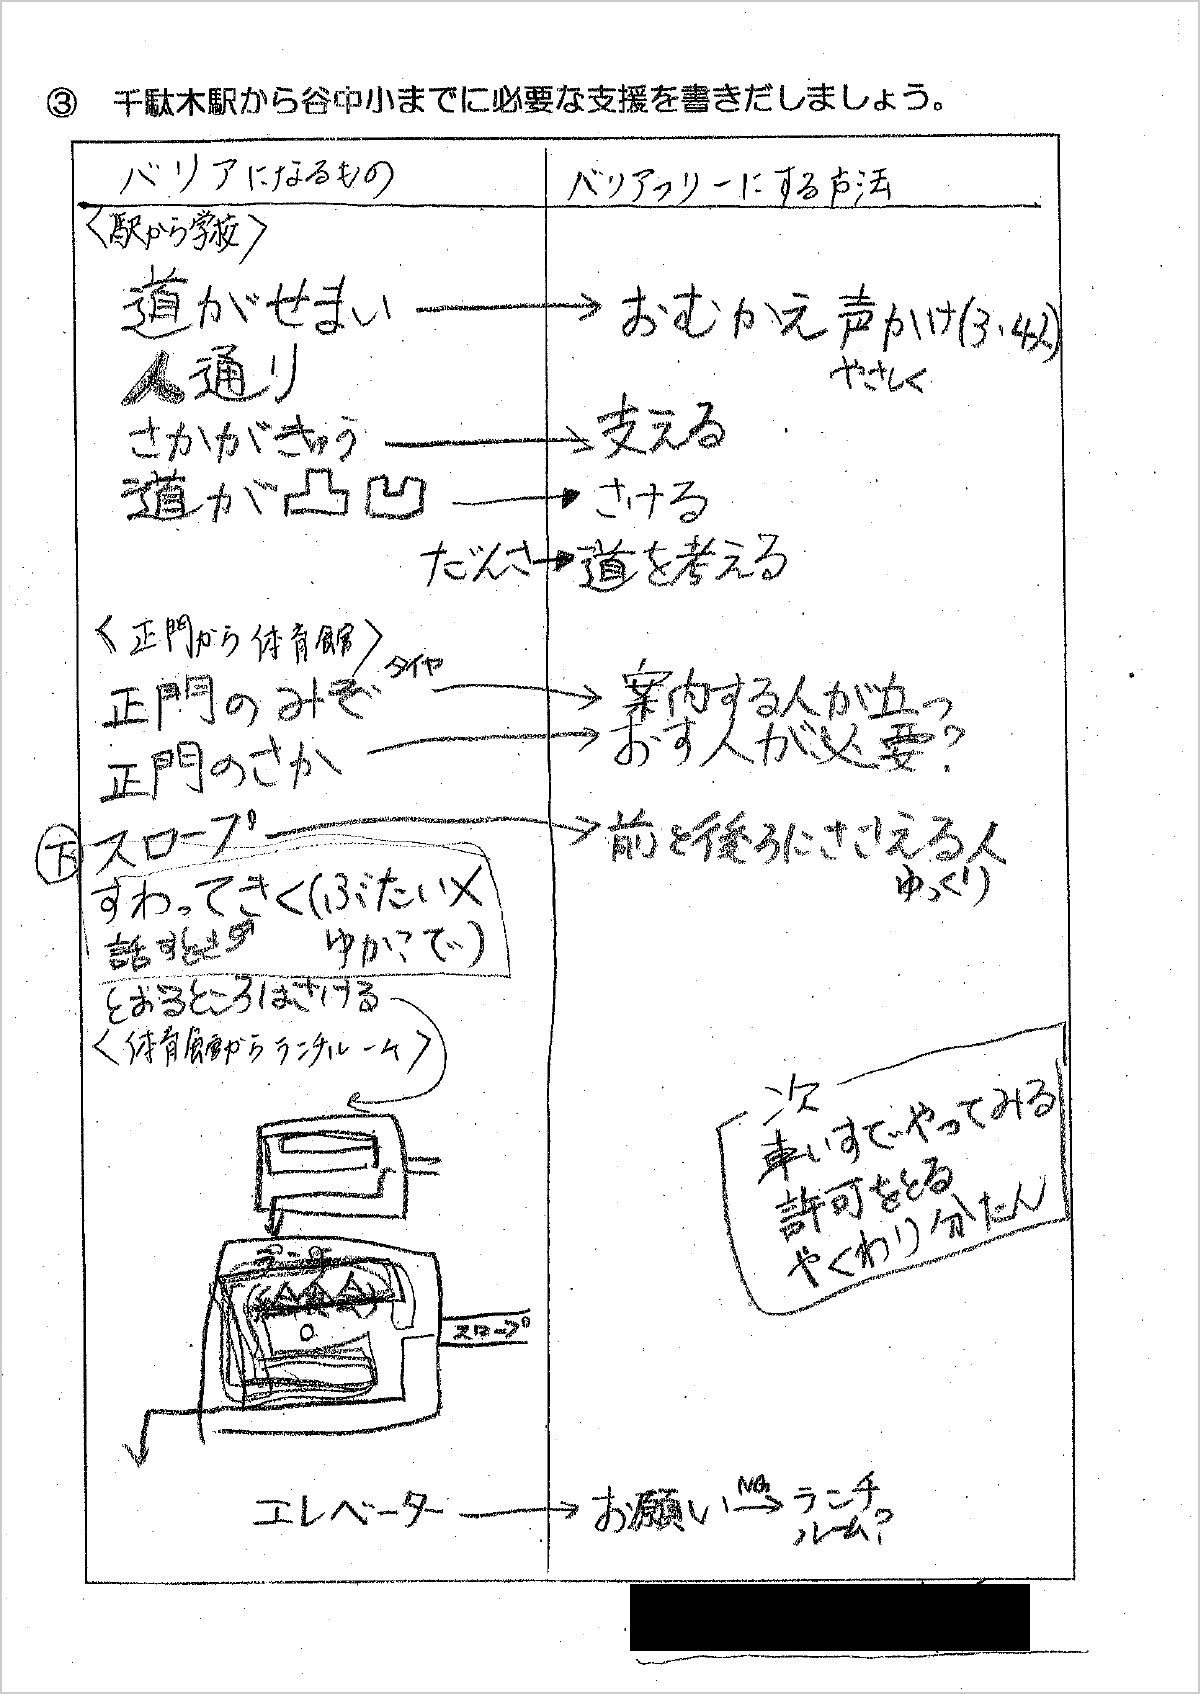 ③ 千駄木駅から谷中小までに必要な支援を書きだしましょう。
バリアになるもの
バリアフリーにする方法
〈駅から学校〉
道がせまい → おむかえ 声かけ(3、4人)
やさしく
人通り
さかがきゅう → 支える
道が凸凹 → さける
だんさ → 道を考える
〈正門から体育館〉
タイヤ
正門のみぞ → 案内する人が立つ
正門のさか → おす人が必要?
下 スロープ → 前と後ろにささえる人
ゆっくり
すわってきく(ぶたい✕
話すとき ゆか?で)
とおるところはさける
〈体育館からランチルーム〉
次
車いすでやってみる
許可をとる
やくわり分たん
スロープ
エレベーター → お願い → ランチ
NG
ルーム?